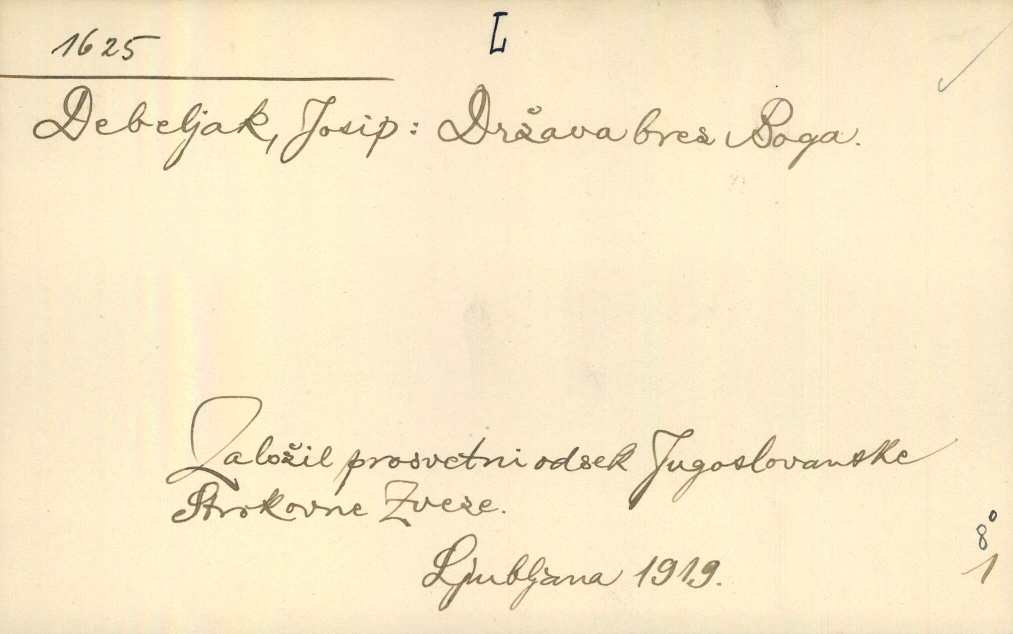 1625
L
Debeljak, Josip: Država brez Boga.
Založil prosvetni odsek Jugoslovanske
Strokovne Zveze.
Ljubljana 1919.
8°
1